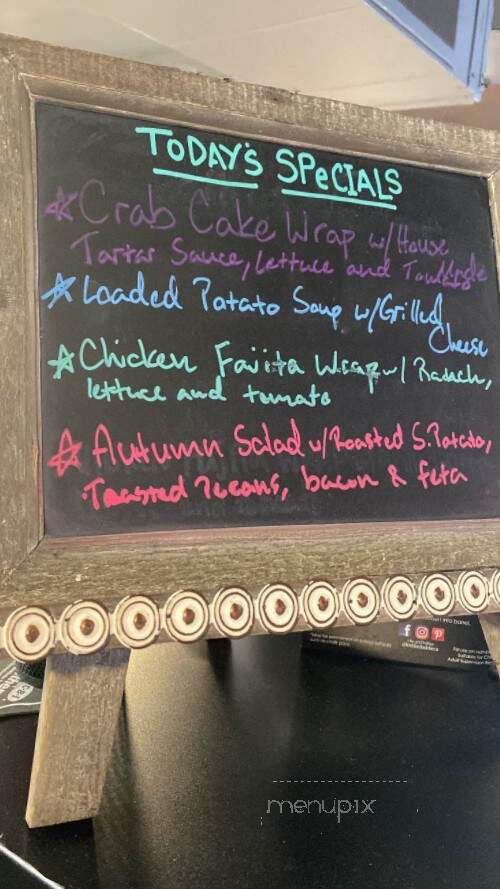 TODAY'S SPECIALS
Crab Cake Wrap w/ House
Tartar Sauce, lettuce and
Loaded Potato Soup w/ Grilled
Cheese
Chicken Fajita Wrap w/ Ranch,
lettuce and tomato
Autumn Salad w/ Roasted S. Potato,
Toasted Pecans, bacon & feta
menupix